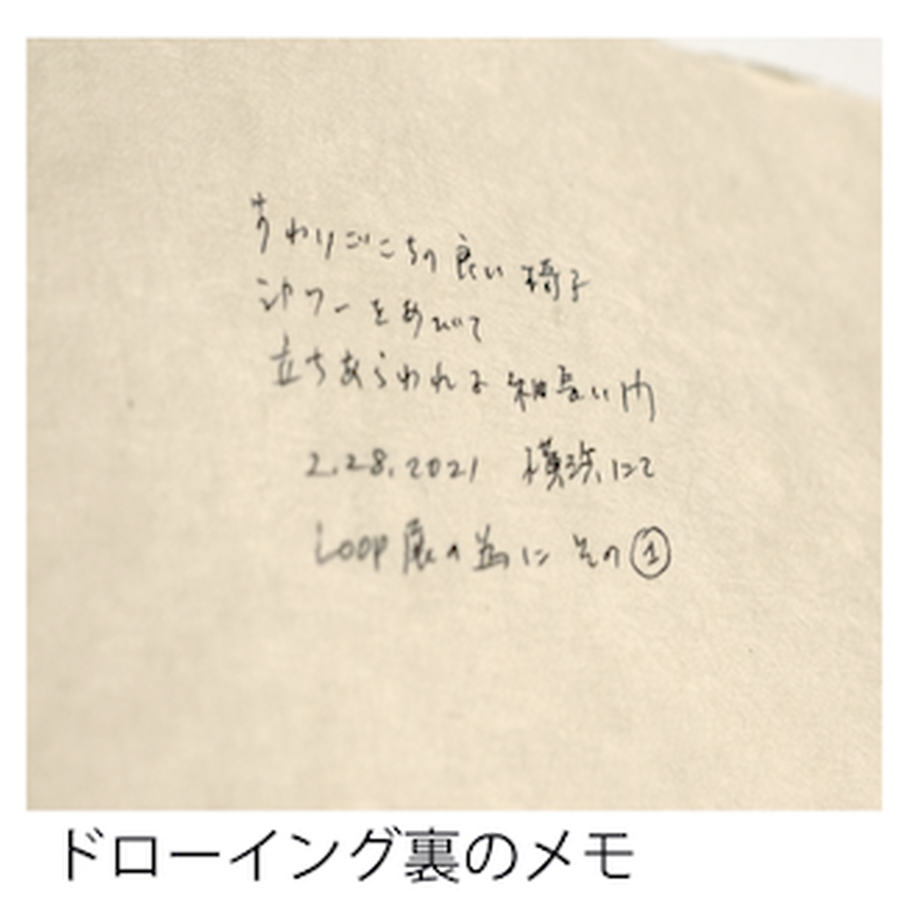 すわりごこちの良い椅子
シャワーをあびて
立ちあらわれる 細長い円
2.28.2021 横浜にて
Loop展の為に その①
ドローイング裏のメモ